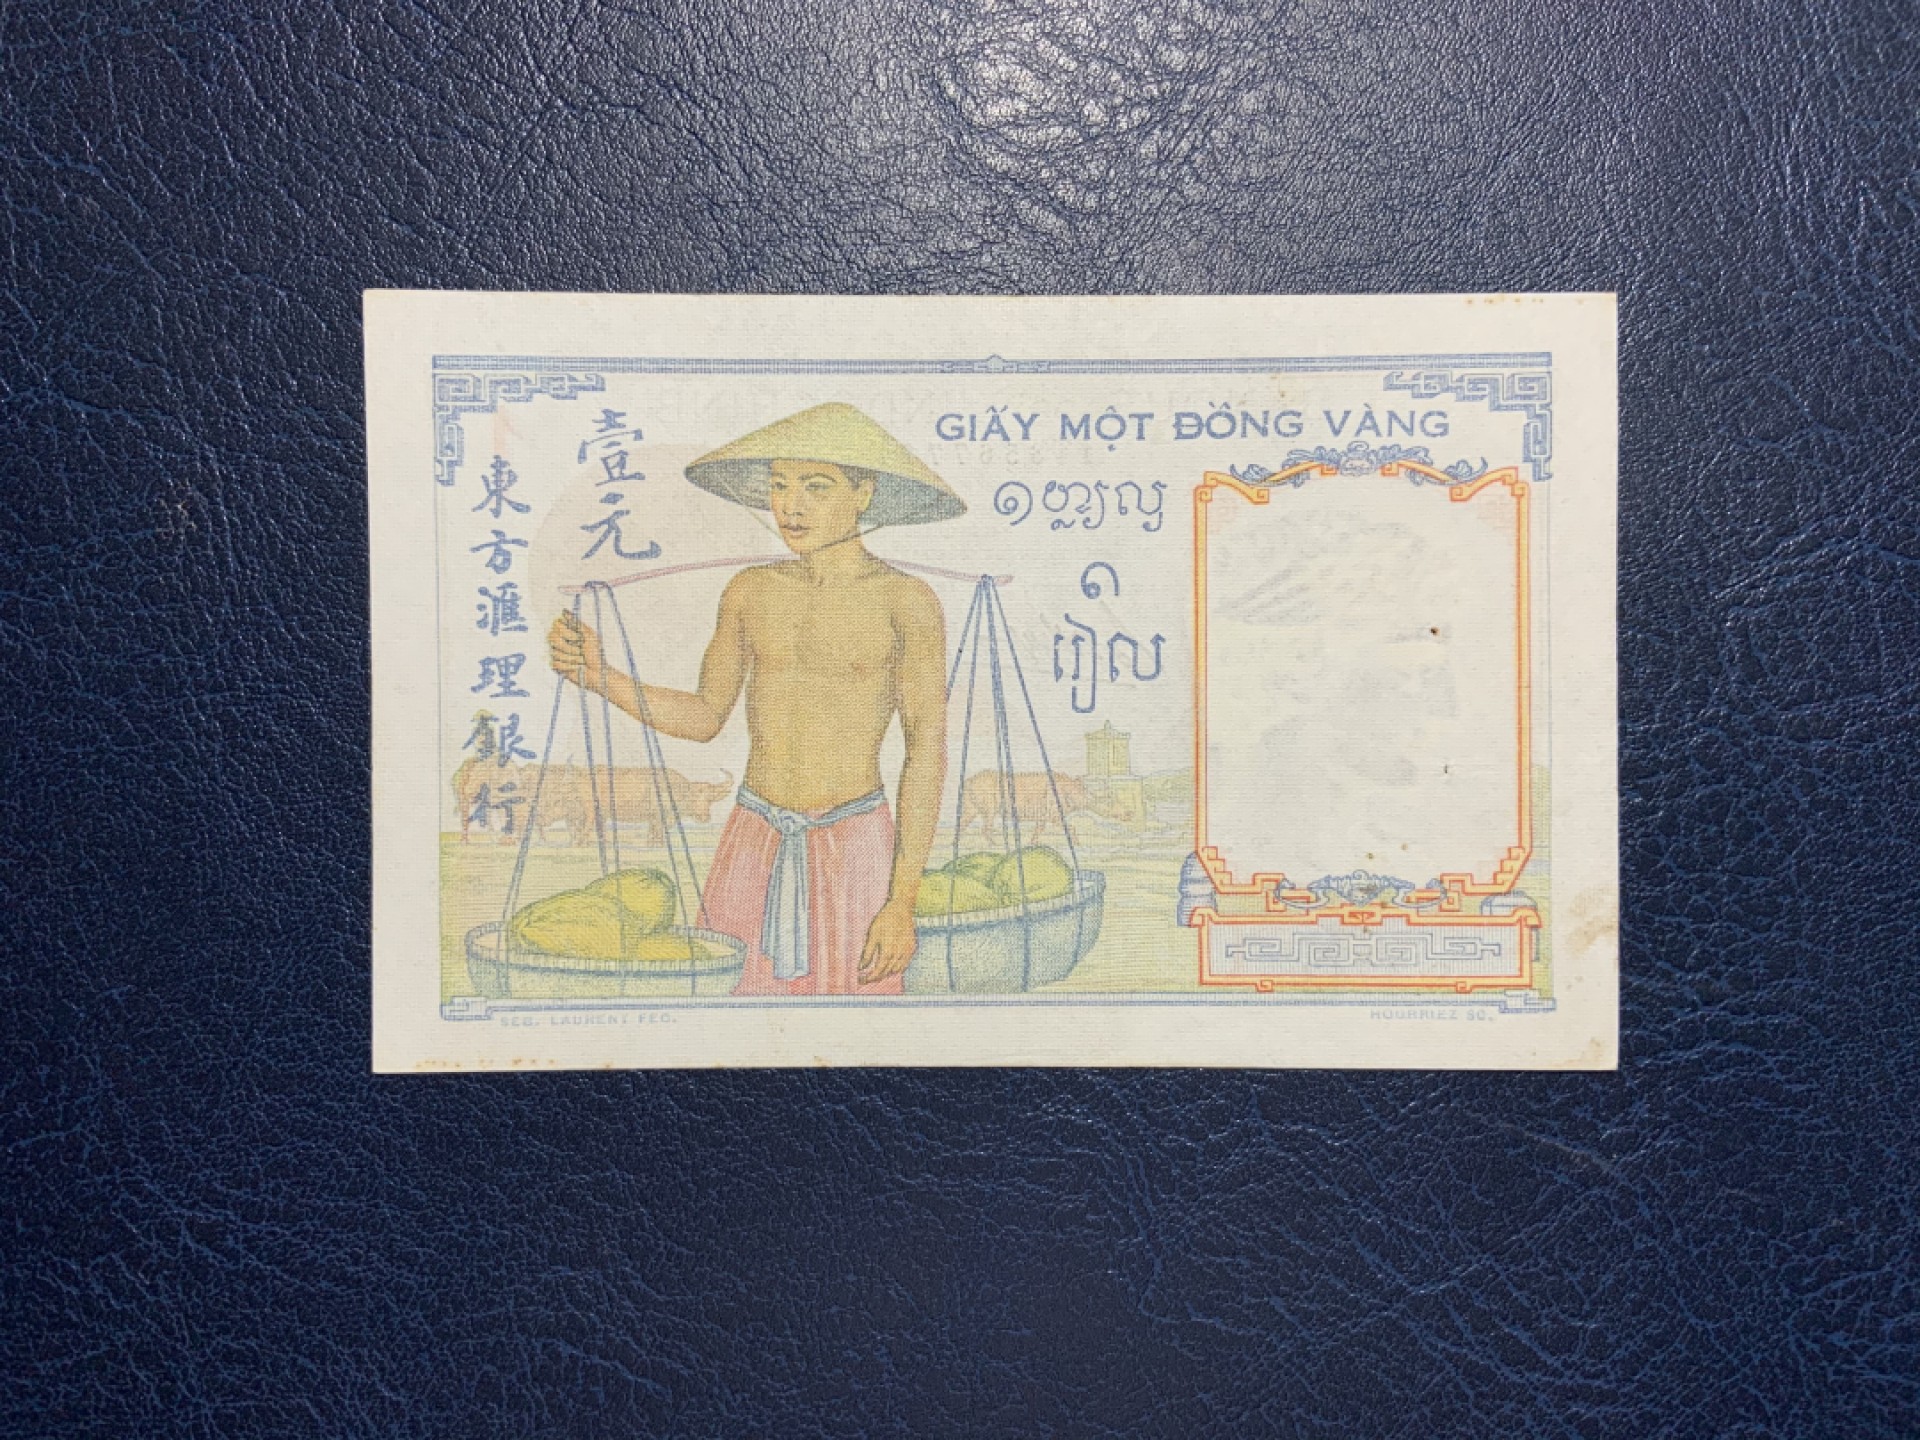 東方滙理銀行
壹元
GIẤY MỘT ĐỒNG VÀNG
១
រៀល
SEB. LAURENT FEC.
HOURRIEZ SC.